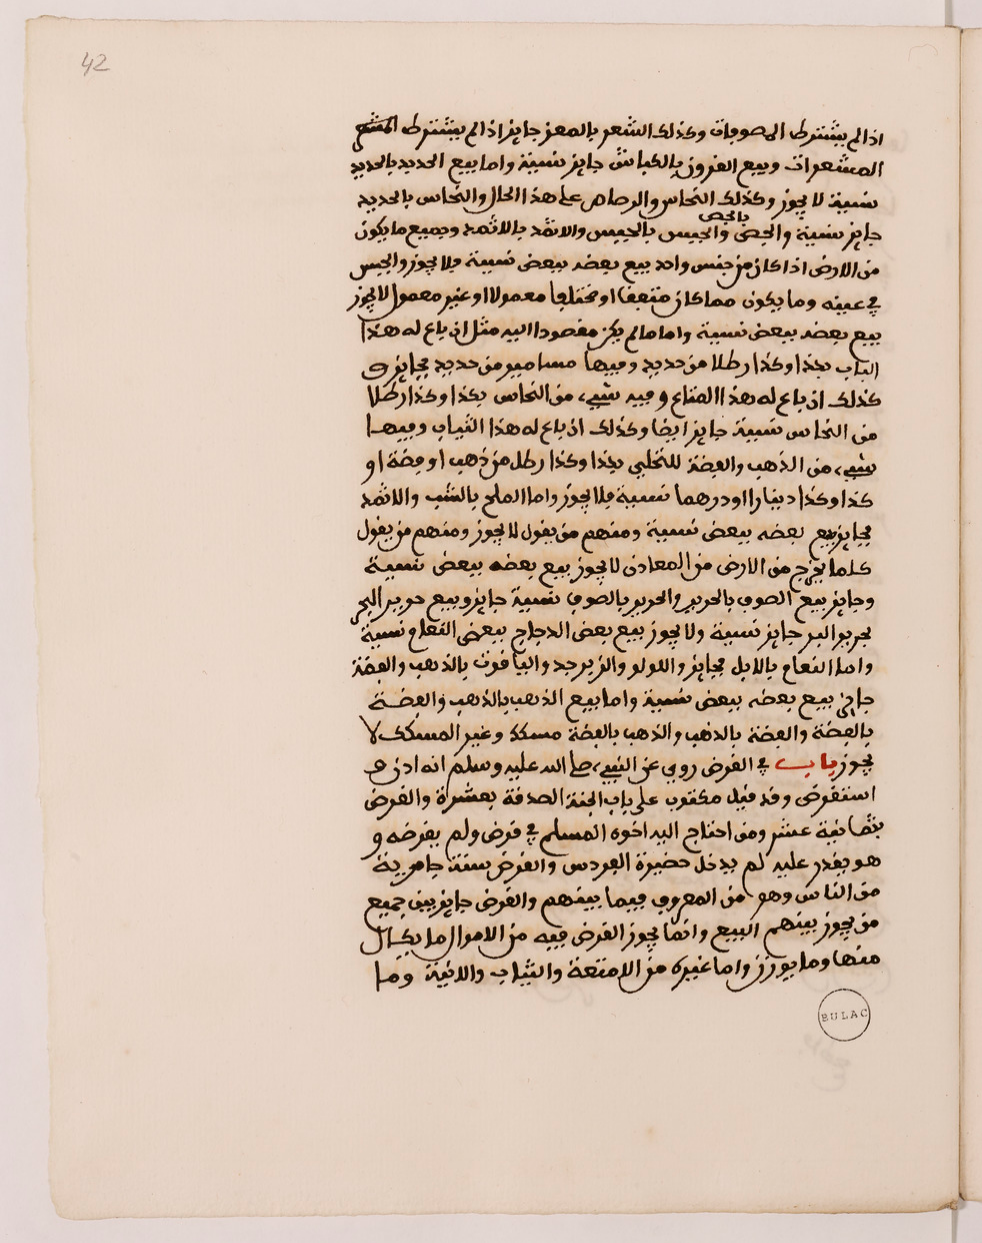 42
اذا لم يشترط المصوفات وكذلك الشعر بالمعز جايز اذا لم يشترط
المشعرات وبيع الفرو بالكباش جايز نسية واما بيع الحديد بالحديد
نسية لا يجوز وكذلك النحاس والرصاص على هذا الحال والنحاس بالحديد
بالجص
جايز نسية والجص والجبس بالجبس والاثمد بالاثمد وجميع ما يكون
من الارض اذا كان من جنس واحد بيع بعضه ببعض نسية فلا يجوز والجبس
في عينه وما يكون مما كان متفقا او مختلفا معمولا او غير معمول لا يجوز
بيع بعضه ببعض نسية واما ما لم يكن مقصودا اليه مثل ان باع له هذا
الباب بكذا وكذا رطلا من حديد وفيها مسامير من حديد فجايز و
كذلك ان باع له هذا المتاع وفيه شيء من النحاس بكذا وكذا رطلا
من النحاس نسية جايز ايضا وكذلك ان باع له هذا الثياب وفيها
شيء من الذهب والفضة للتحلي بكذا وكذا رطل من ذهب او فضة او
كذا وكذا دينارا او درهما نسية فلا يجوز واما الملح بالشب والاثمد
فجايز بيع بعضه ببعض نسية ومنهم من يقول لا يجوز ومنهم من يقول
كلما يخرج من الارض من المعادن لا يجوز بيع بعضه ببعض نسية
وجايز بيع الصوف بالحرير والحرير بالصوف نسية جايز وبيع حرير البحر
بحرير البر جايز نسية ولا يجوز بيع بعض الدجاج ببعض النعام نسية
واما النعام بالابل فجايز واللولو والزبرجد والياقوت بالذهب والفضة
جايز بيع بعضه ببعض نسية واما بيع الذهب بالذهب والفضة
بالفضة والفضة بالذهب والذهب بالفضة مسكك وغير المسكك لا
يجوز باب في القرض روي عن النبيء صلى الله عليه وسلم انه
استقرض وقد قيل مكتوب على باب الجنة الصدقة بعشرة والقرض
بثمانية عشر ومن احتاج اليه اخوه المسلم في قرض ولم يقرضه و
هو يقدر عليه لم يدخل حضيرة الفردس والقرض سنة جامرية
من الناس وهو من المعروف فيما بينهم والقرض جايز بين جميع
من يجوز بينهم البيع وانما يجوز القرض فيه من الاموال ما يكال
منها وما يوزن واما غيره من الامتعة والثياب والانية وما
BULAC